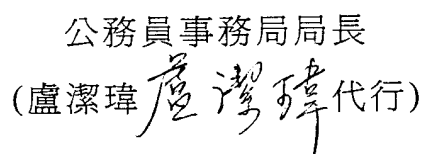 公務員事務局局長
(盧潔瑋盧潔瑋代行)